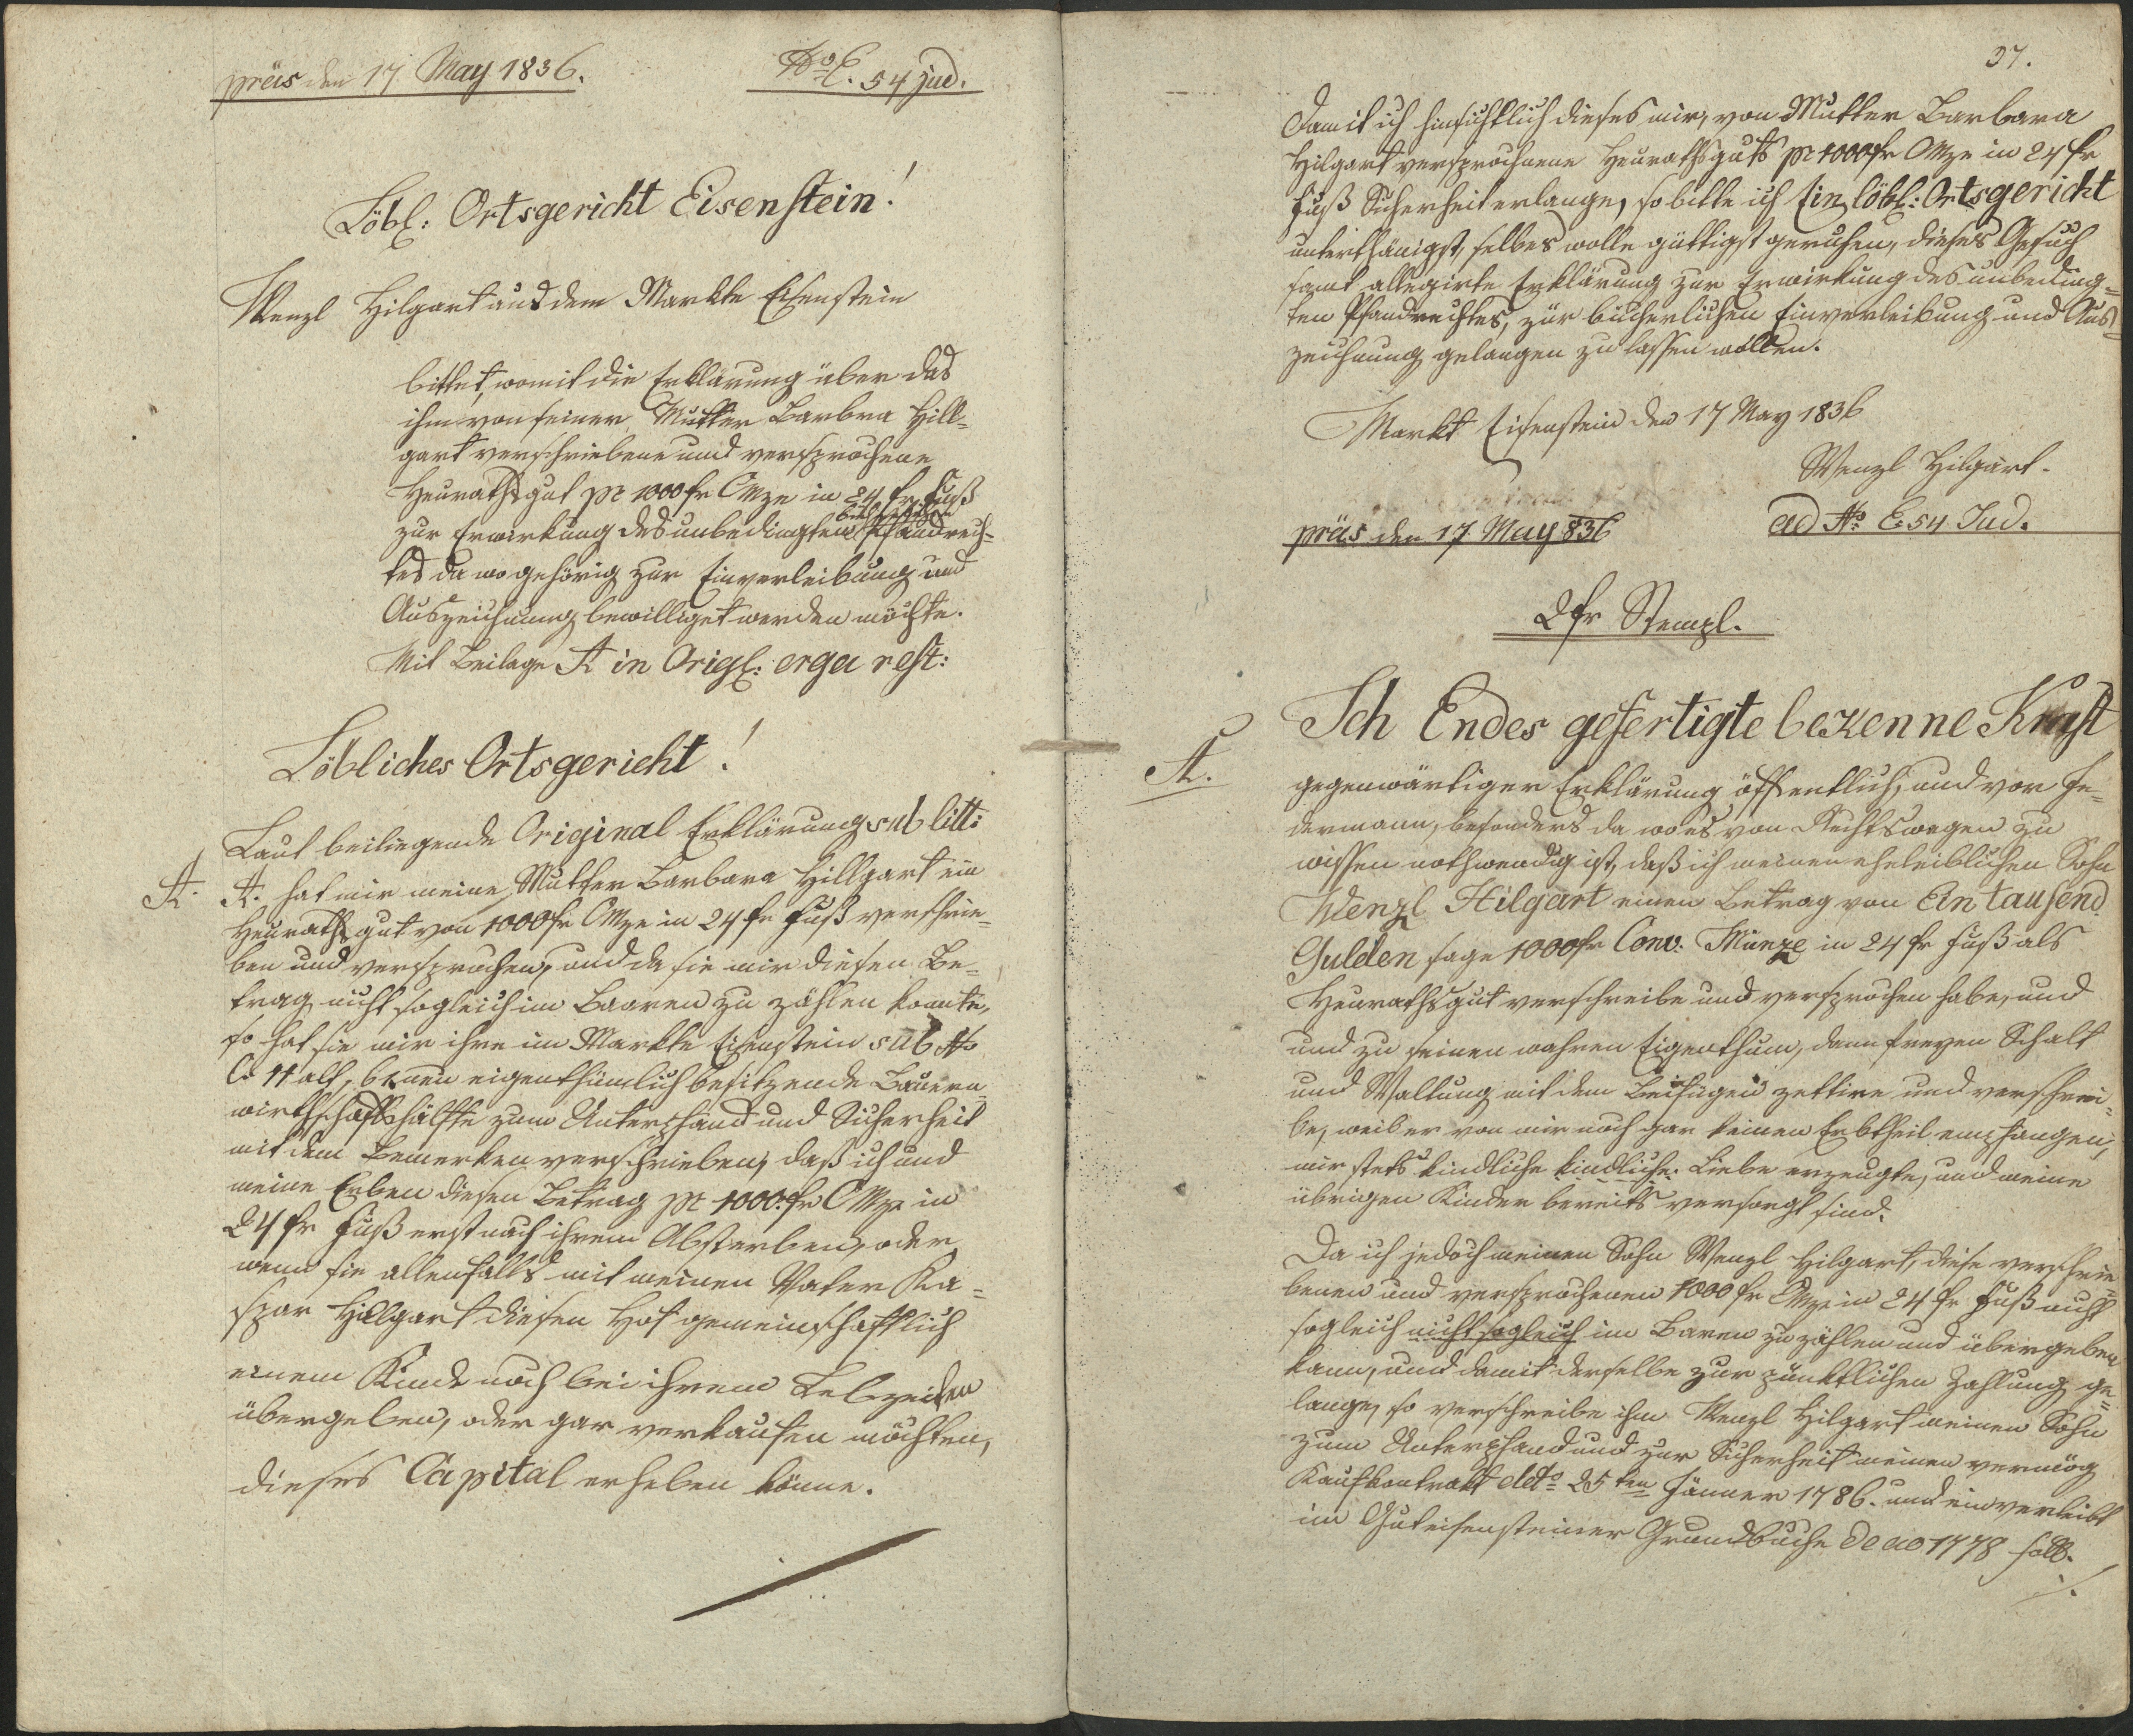 präs den 17 May 1836.
No E. 54 jud.
Löbl: Ortsgericht Eisenstein!
Wenzl Hilgart aus dem Markte Eisenstein
bittet, womit die Erklärung über das
ihm von seiner Mutter Barbra Hill-
gart verschriebene und versprochene
Heurathsgut pr 1000 fr CMze in 24 fr Fuß
zur Erwirkung des unbedingten Pfandrech-
tes da wo gehörig zur Einverleibung und
Auszeichnung bewilliget werden möchte.
Mit Beilage A in Origl: erga rest:
Löbliches Ortsgericht!
Laut beiliegende Original Erklärung sub litt:
A. A. hat mir meine Mutter Barbara Hillgart ein
Heurathsgut von 1000 fr CMze in 24 fr Fuß verschrie-
ben und versprochen, und da sie mir diesen Be-
trag nicht sogleich im Baaren zu zahlen konnte,
so hat sie mir ihre im Markte Eisenstein sub No
C. 11 alt, 6 neu eigenthümlich besitzende Bauern-
wirthschaftshälfte zum Unterpfand und Sicherheit
mit dem Bemerken verschrieben, daß ich und
meine Erben diesen Betrag pr 1000 fr CMze in
24 fr Fuß erst nach ihrem Absterben, oder
wenn sie allenfalls mit meinen Vater Ka-
spar Hilgart diesen Hof gemeinschaftlich
einem Kinde noch bei ihrem Lebzeiten
übergeben, oder gar verkaufen möchten,
dieses Capital erheben könne.
37.
Damit ich hinsichtlich dieses mir, von Mutter Barbara
Hilgart versprochene Heurathsguts pr 1000 fr CMze in 24 fr
Fuß Sicherheit erlange, so bitte ich Ein löbl: Ortsgericht
unterthänigst, selbes wolle güttigst geruhen, dieses Gesuch
samt allegirte Erklärung zur Erwirkung des unbeding-
ten Pfandrechtes, zür bücherlichen Einverleibung und Aus-
zeichnung gelangen zu lassen wollen.
Markt Eisenstein den 17 May 1836
Wenzl Hilgart.
präs den 17 May 836
ad No E. 54 Jud.
2 fr Stempl.
A.
Ich Endes gefertigte bekenne Kraft
gegenwärtiger Erklärung öffentlich, und vor Je-
dermann, besonders da wo es von Rechtswegen zu
wissen nothwendig ist, daß ich meinen eheleiblichen Sohn
Wenzl Hilgart einen Betrag von Ein tausend
Gulden sage 1000 fr Conv. Münze in 24 fr Fuß als
Heurathsgut verschreibe und versprochen habe, und
und zu seinen wahren Eigenthum, dann freyen Schalt
und Waltung mit dem Beifügen zettire und verschrei-
be, weil er von mir noch gar keinen Erbtheil empfangen,
mir stets kindliche kindliche Liebe erzeugte, und meine
übrigen Kinder bereits versorgt sind.
Da ich jedoch meinen Sohn Wenzl Hilgart, diese verschrie-
benen und versprochenen 1000 fr CMze in 24 fr Fuß nicht
sogleich nicht sogleich im Baren zu zahlen und übergeben
kann, und damit derselbe zur pünktlichen Zahlung ge-
lange, so verschreibe ihm Wenzl Hilgart meinen Sohn
zum Unterpfand und zur Sicherheit meinen vermög
Kaufkontrakt ddto 25ten Jänner 1786. und einverleibt
im Guteisensteiner Grundbuche de ao 1778 foll.
./.